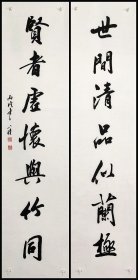 世間清品似蘭極
賢者虛懷與竹同